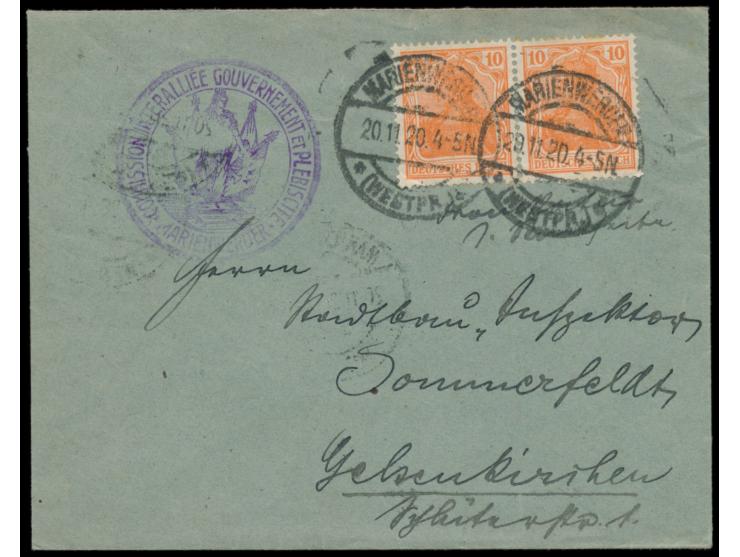 COMMISSION INTERALLIÉE GOUVERNEMENT ET PLÉBISCITE
MARIENWERDER
10 10
DEUTSCHES REICH
MARIENWERDER
20.11.20. 4-5N
* (WESTPR.)
MARIENWERDER
20.11.20. 4-5N
* (WESTPR.)
Herrn
Stadtbau-Inspektor
Sommerfeldt,
Gelsenkirchen
Schlüterstr. 1.